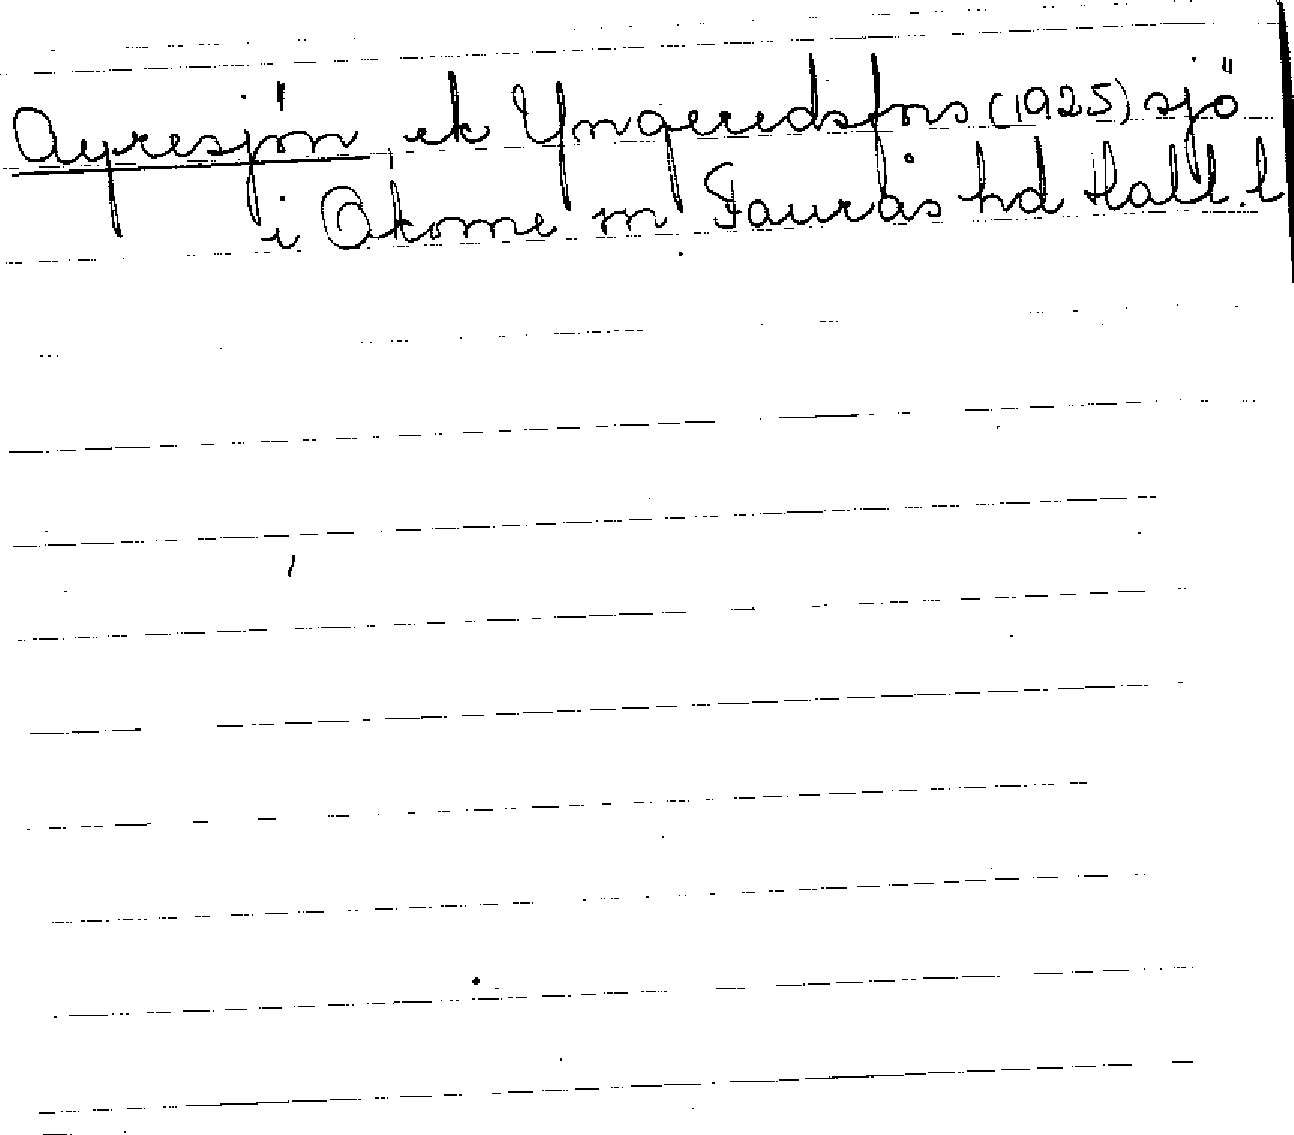 Ayresjön ek Yngeredsfors (1925) sjö
i Okome m fl Faurås hd Hall. l